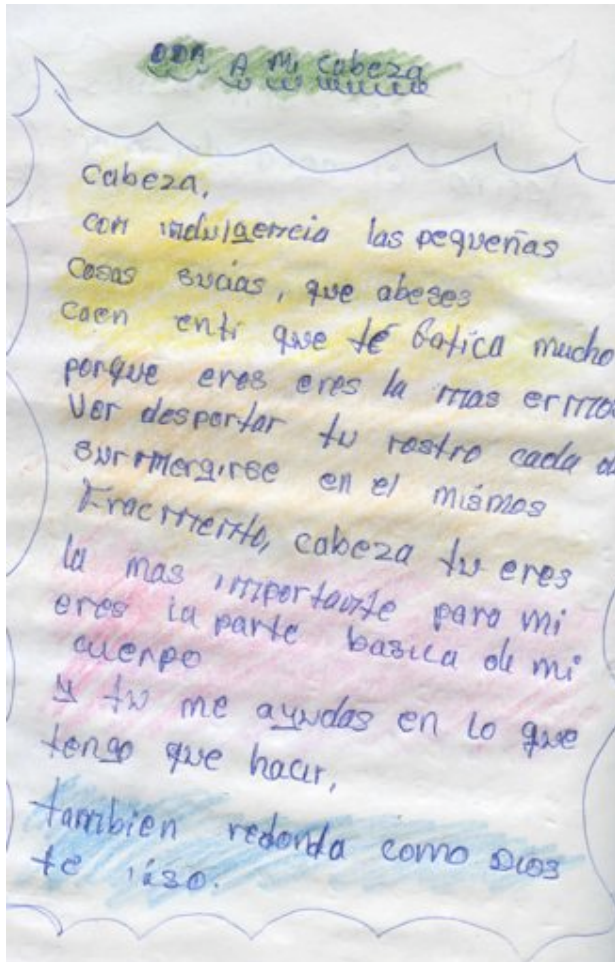 ODA A Mi Cabeza
Cabeza,
con indulgencia las pequeñas
cosas sucias, que abeses
caen enti que té fatica mucho
porque eres eres la mas ermo
Ver despertar tu rostro cada d
surmergirse en el mismos
Fracmento, cabeza tu eres
la mas importante para mi
eres la parte basica de mi
cuerpo
y tu me ayudas en lo que
tengo que hacer,
tambien redonda como Dios
te iso.